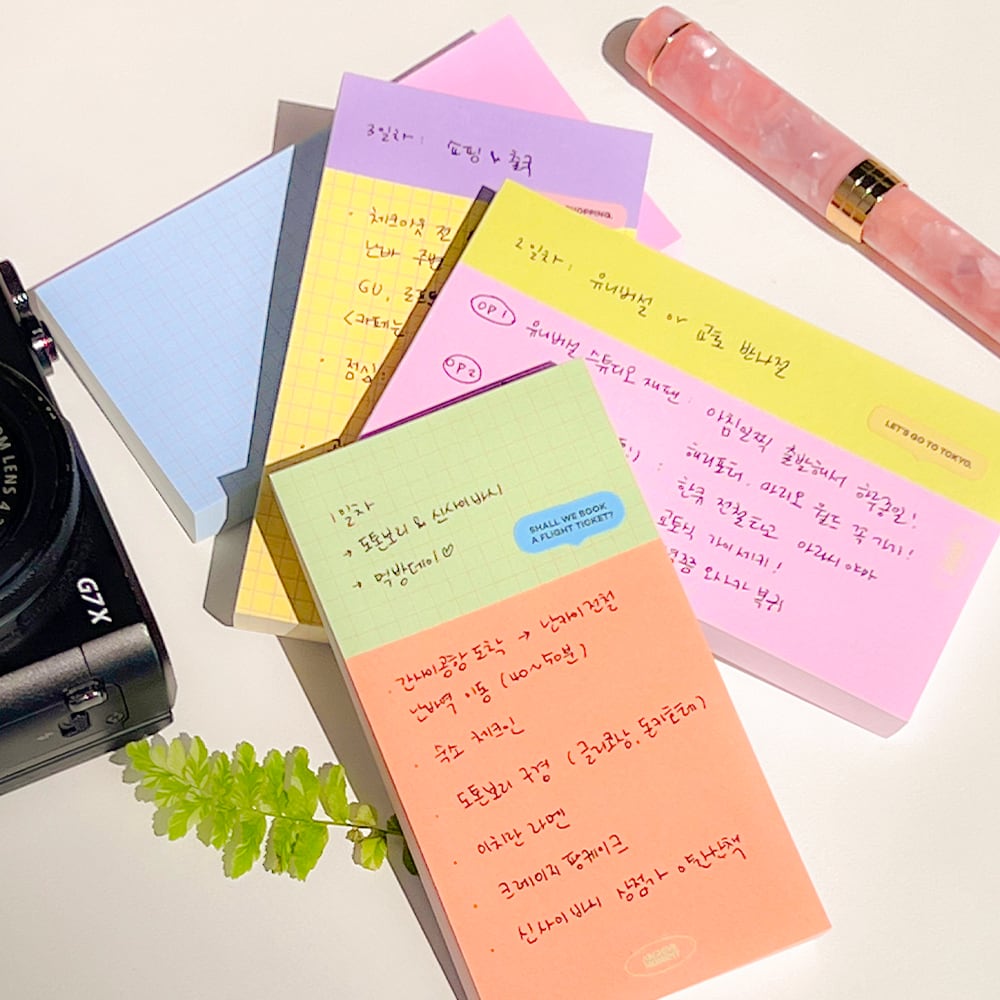 3일차: 쇼핑 & 출국
HOPPING.
체크아웃 전
난바 주변
GU, 로프트
<카페는
점심:
2일차: 유니버설 or 교토 반나절
LET'S GO TO TOKYO.
OP1 유니버설 스튜디오 재팬: 아침일찍 출발해서 하루종일!
해리포터, 마리오 월드 꼭 가기!
OP2
한큐 전철타고 아라시야마
교토식 가이세키!
오사카 복귀
1일차
→ 도톤보리 & 신사이바시
→ 먹방데이♡
SHALL WE BOOK
A FLIGHT TICKET?
· 간사이공항 도착 → 난카이전철
난바역 이동 (40~50분)
· 숙소 체크인
· 도톤보리 구경 (글리코상, 돈키호테)
· 이치란 라멘
· 크레이지 팬케이크
· 신사이바시 상점가 야간산책
ARCHIVE
MOMENT
OM LENS 4.2
G7X